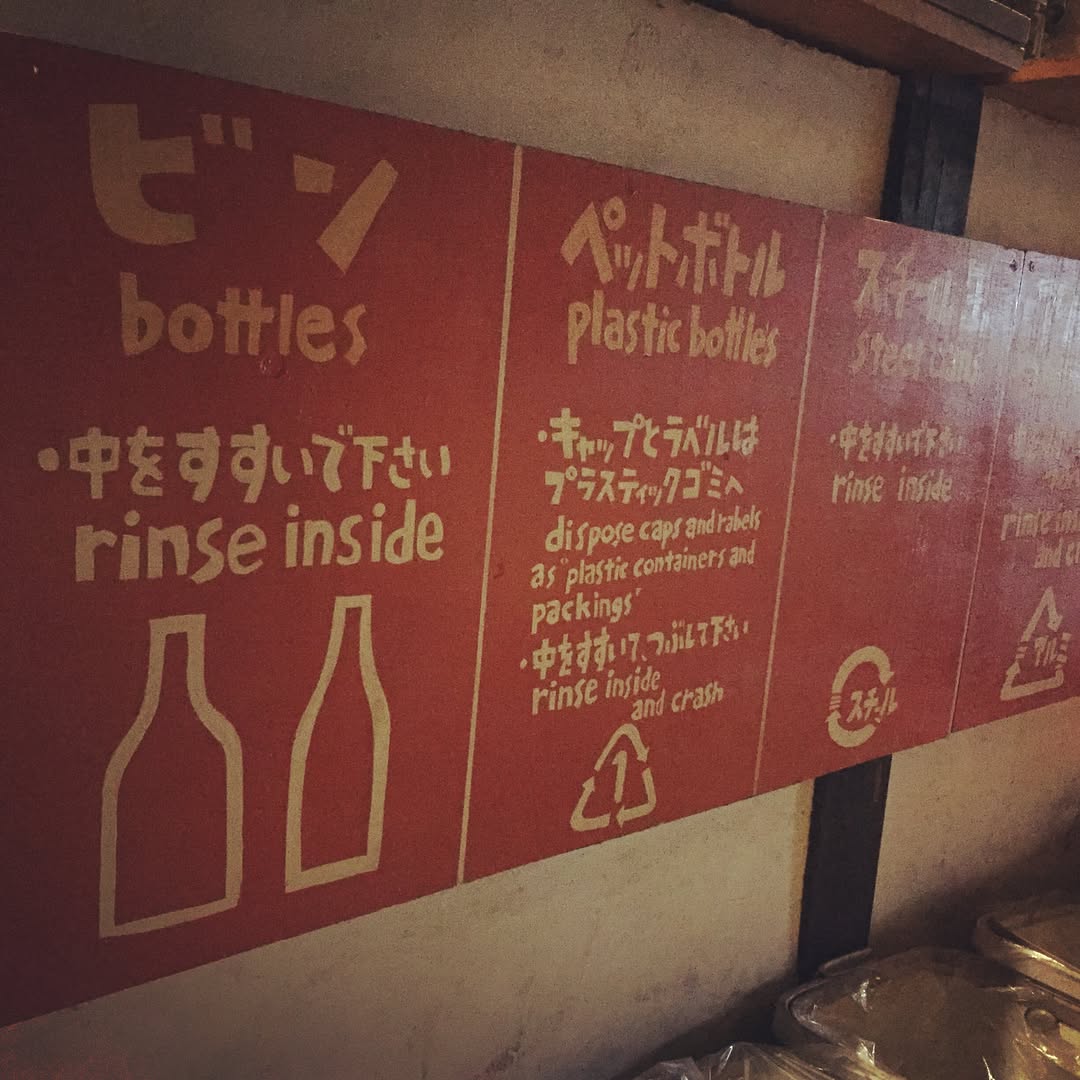 ビン
bottles
・中をすすいで下さい
rinse inside
ペットボトル
plastic bottles
・キャップとラベルは
プラスティックゴミへ
dispose caps and rabels
as "plastic containers and
packings"
・中をすすいで、つぶして下さい
rinse inside
and crash
1
スチール
steel cans
・中をすすいで下さい
rinse inside
スチール
rinse
and
アルミ